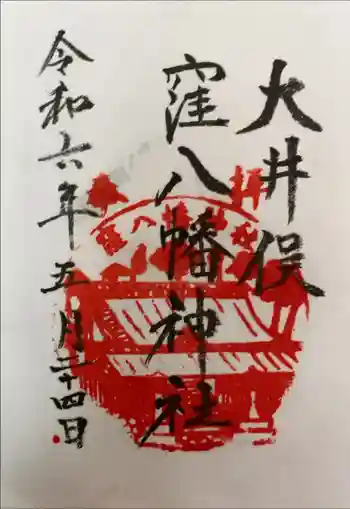 大井俣
窪八幡神社
令和六年五月二十四日
拝